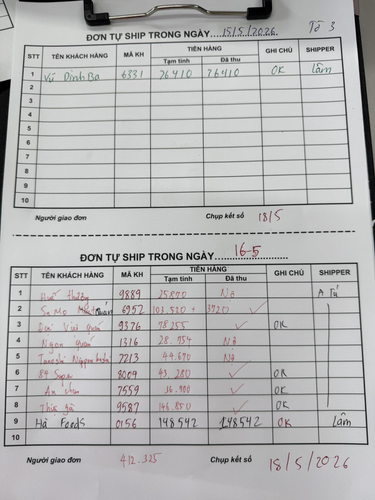 Tờ 3
ĐƠN TỰ SHIP TRONG NGÀY...15/5/2026.
STT TÊN KHÁCH HÀNG MÃ KH TIỀN HÀNG GHI CHÚ SHIPPER
Tạm tính Đã thu
1 Vũ Đình Ba 6331 76410 76410 OK Lâm
2
3
4
5
6
7
8
9
10
Người giao đơn Chụp kết số 18/5
ĐƠN TỰ SHIP TRONG NGÀY....16-5
STT TÊN KHÁCH HÀNG MÃ KH TIỀN HÀNG GHI CHÚ SHIPPER
Tạm tính Đã thu
1 Huế thương 9889 25870 Nợ A Tú
2 6952 103.520 + 3720 ✓
3 quán 9376 78255 ✓ OK
4 Ngon quán 1316 28.754 Nợ
5 Nippon 7213 44.670 Nợ
6 89 3009 43.280 ✓ OK
7 An 7559 36.900 ✓ OK
8 gà 9587 146.850 ✓ OK
9 Hà Foods 0156 148542 148542 OK Lâm
10
Người giao đơn 412.325 Chụp kết số 18/5/2026